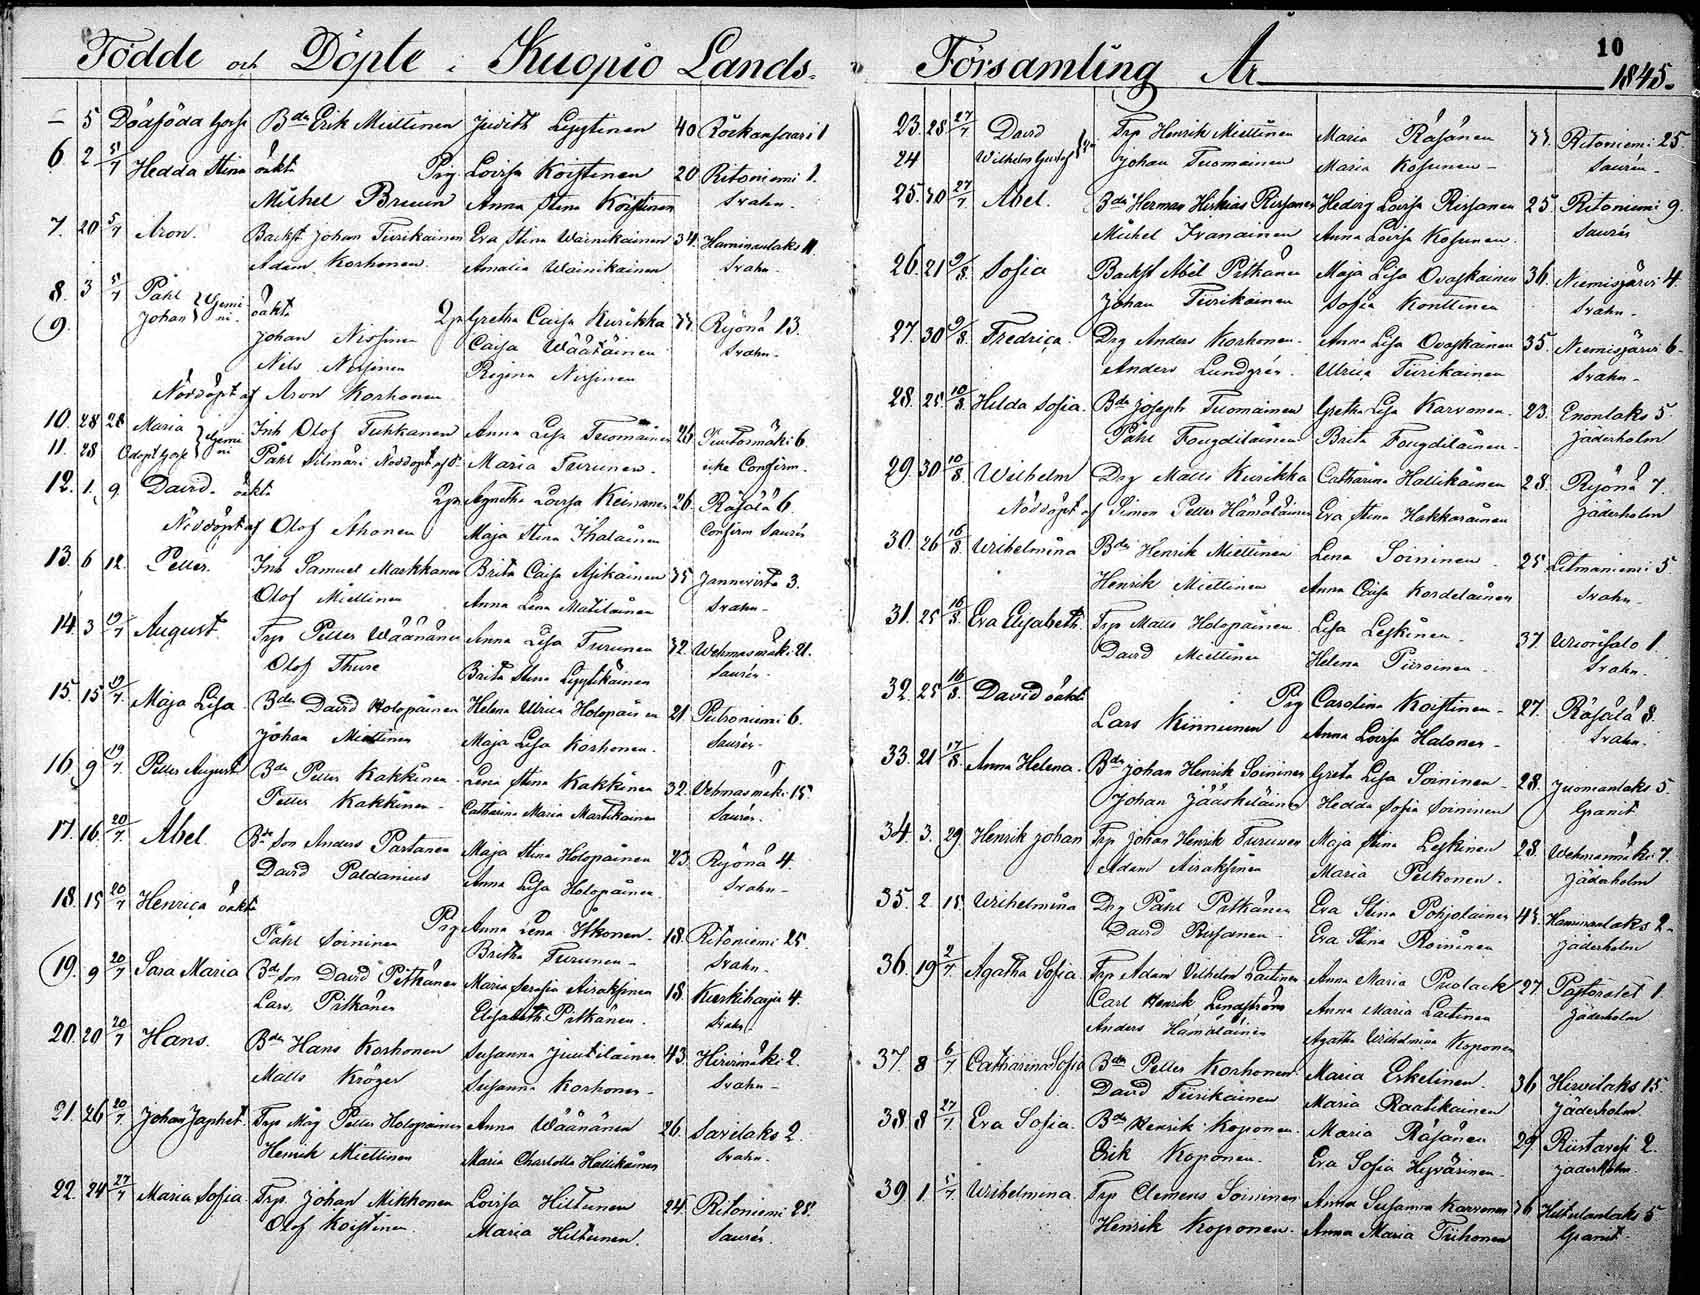 Födde och Döpte i Kuopio Lands-
— 5 Dödföda Gosse Bdn Erik Miettinen Judith Lyytinen 40 Räekansaari 1
6 2 5/7 Hedda Stina oäkta Pig Lovisa Koistinen 20 Ritoniemi 1.
Michel Bruun Anna Stina Koistinen Svahn.
7. 20 5/7 Aron. Backst Johan Tiirikainen Eva Stina Wäinikainen 34. Haminanlaks 11.
Adam Korhonen. Amalia Wäinikainen Svahn.
8. 3 5/7 Påhl oäkta Gretha Caisa Kurikka Ryönä 13.
9. Johan Gemi-ni. Johan Nissinen Caisa Wäätäinen Svahn.
Nils Nissinen Regina Nissinen
Nöddöpt af Aron Korhonen
10. 28 28 Maria Inh Olof Tuhkanen Anna Lisa Tuomainen 26 6.
11. 28 Gemi-ni Påhl Maria Turunen. icke Confirm.
12. 1. 9. David. oäkta Agnetha Lovisa Keinänen 26. Räsälä 6.
Nöddöpt af Olof Ahonen Maja Stina Ikäläinen Confirm Saurén
13. 6 12. Petter. Inh Samuel Markkanen Brita Caisa Asikainen 35 Jännevirta 3.
Olof Miettinen Anna Lena Matilainen Svahn.
14. 3 19/7 August. Trp Petter Wäänänen Anna Lisa Turunen 32. Wehmasmäki 21.
Olof Thure Brita Stina Lyytikäinen Saurén.
15. 15 19/7. Maja Lisa. Bdn David Holopainen Helena Ulrica Holopainen 21 Putroniemi 6.
Johan Miettinen Maja Lisa Korhonen. Saurén.
16. 9 19/7. Petter August Bdn Petter Kakkinen Lena Stina Kakkinen 32. Wehmasmäki 15.
Petter Kakkinen. Catharina Maria Martikainen Saurén.
17. 16. 20/7. Abel Bde Son Anders Partanen Maja Stina Holopainen 23. Ryönä 4.
David Paldanius Anna Lisa Holopainen. Svahn.
18. 15 20/7 Henrica oäkta Pig Anna Lena Itkonen 18. Ritoniemi 25.
Påhl Soininen Britha Turunen. Svahn.
19. 9 20/7 Sara Maria Bde Son David Pitkänen Maria Serafia Airaksinen 18 Kurkiharju 4.
Lars Pitkänen Elisabeth Pitkänen. Svahn.
20. 20 20/7 Hans. Bdn Hans Korhonen Susanna Juutilainen 43. Hirvimäki 2.
Matts Kröger Susanna Korhonen. Svahn.
21. 26 20/7 Johan Japhet. Trp Måg Petter Holopainen Anna Wäänänen 26. Savilaks 2.
Henrik Miettinen Maria Charlotta Hallikainen Svahn.
22. 24 27/7 Maria Sofia. Trp. Johan Mikkonen Lovisa Hiltunen 24. Ritoniemi 28.
Olof Koistinen Maria Hiltunen. Saurén.
Församling År 1845.
10
23. 28. 27/7 David Trp Henrik Miettinen Maria Räsänen Ritoniemi 25.
24 Wilhelm Gustaf Johan Tuomainen Maria Kosunen Saurén.
25. 30 27/7 Abel. Bdn Herman Hiskias Rissanen Hedvig Lovisa Rissanen 25. Ritoniemi 9.
Michel Ivanainen Anna Lovisa Kosunen. Saurén
26. 21 9/8. Sofia Backst Abel Pitkänen Maja Lisa Ovaskainen 36. Niemisjärvi 4.
Johan Tiirikainen Sofia Konttinen Svahn.
27. 30 9/8. Fredrica. Drg Anders Korhonen. Anna Lisa Ovaskainen 35. Niemisjärvi 6.
Anders Lundgrén. Ulrica Tiirikainen Svahn.
28. 25. 10/8. Hilda Sofia. Bdn Joseph Tuomainen Gretha Lisa Karvonen. 23. Enonlaks 5.
Påhl Fougdilainen Brita Fougdilainen Jäderholm
29. 30 10/8. Wilhelm Drg Matts Kurikka Catharina Hallikainen 28. Ryönä 7.
Nöddöpt af Simon Petter Hämäläinen Eva Stina Hakkarainen Jäderholm
30. 26 16/8. Wilhelmina Bdn Henrik Miettinen Lena Soininen. 25 Litmaniemi 5.
Henrik Miettinen Anna Caisa Kordelainen Svahn.
31. 25 16/8. Eva Elisabeth. Trp Matts Holopainen Lisa Leskinen. 37. Wuorisalo 1.
David Miettinen Helena Piiroinen Svahn.
32. 25 16/8. David oäkta Pig Carolina Koistinen 27. Räsälä 8.
Lars Kinnunen Anna Lovisa Halonen. Svahn.
33. 21 17/8. Anna Helena. Bdn Johan Henrik Soininen Greta Lisa Soininen 28. Juomanlaks 5.
Johan Jääskeläinen Hedda Sofia Soininen Granit
34 3. 29. Henrik Johan Trp Johan Henrik Turunen Maja Stina Leskinen 28. Wehmasmäki 7.
Adam Airaksinen Maria Pelkonen. Jäderholm
35. 2. 15. Wilhelmina Drg Påhl Pitkänen Eva Stina Pohjolainen 45. Haminanlaks 2.
David Rissanen Eva Stina Roininen Jäderholm
36. 19 2/7 Agatha Sofia. Trp Adam Vilhelm Laitinen Anna Maria Puolack 27. Pastoratet 1.
Carl Henrik Lindström Anna Maria Laitinen Jäderholm
Anders Hämäläinen Agatha Wilhelmina Koponen
37. 8 6/7 Catharina Sofia Bdn Petter Korhonen Maria Eskelinen. 36 Hirvilaks 15.
David Tiirikainen Maria Raatikainen Jäderholm
38. 8 27/7 Eva Sofia. Bdn Henrik Koponen. Maria Räsänen 29. Riistavesi 2.
Erik Koponen. Eva Sofia Hyvärinen. Jäderholm.
39 1. 5/7. Wilhelmina. Trp Clemens Soininen Anna Susanna Karvonen 36 Hiltulanlaks 5
Henrik Koponen. Anna Maria Tiihonen Granit.